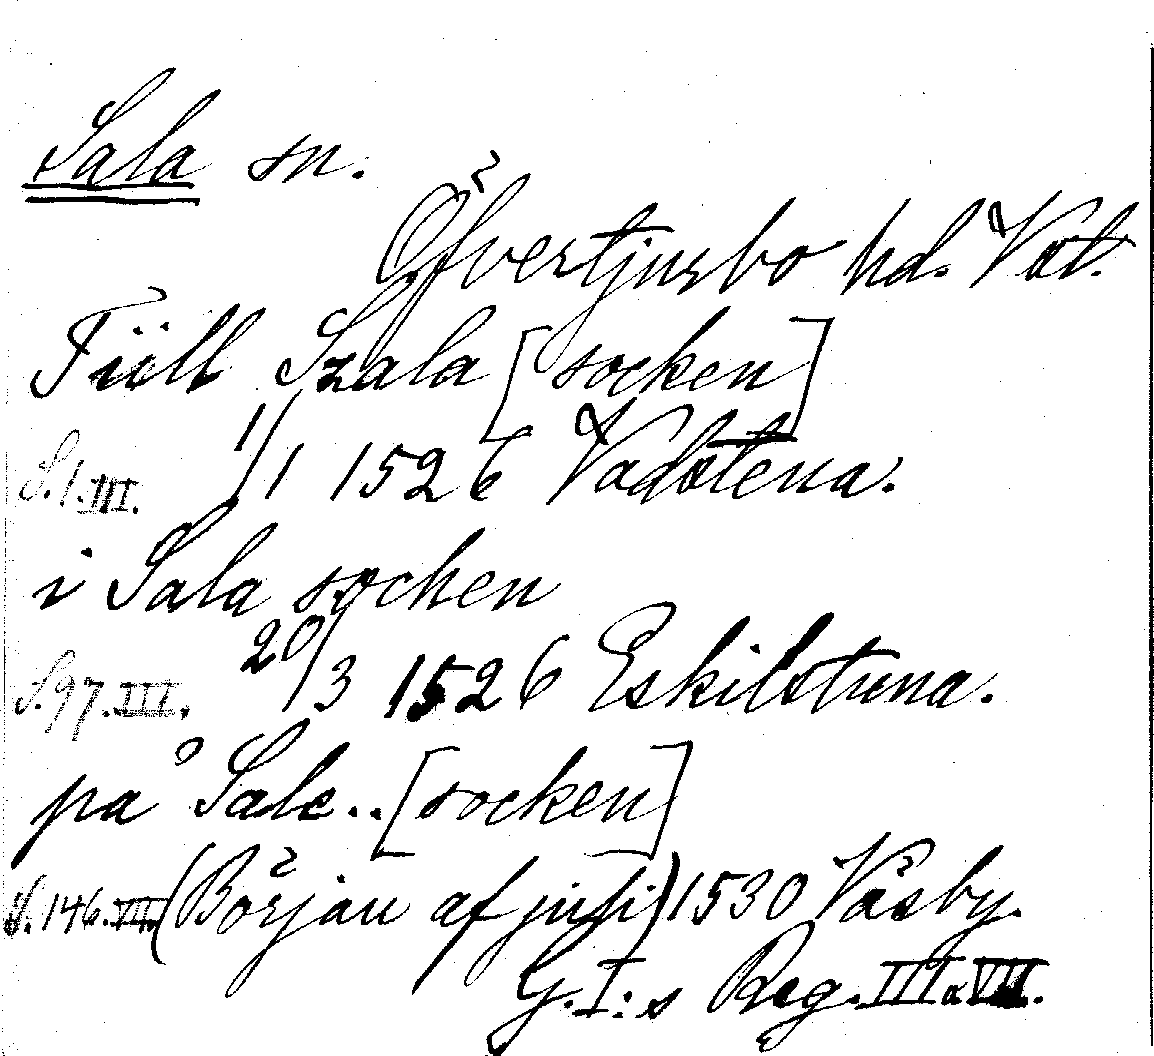 Sala sn.
Öfvertjurbo hd. Vstt.
Tiill Szala [socken]
S.1.III. 1/1 1526 Vadstena.
i Sala sochen
S.97.III. 20/3 1526 Eskilstuna.
på Sale.. [socken]
S.146.VII. (Början af juli) 1530 Väsby.
G.I:s Reg. III o. VII.